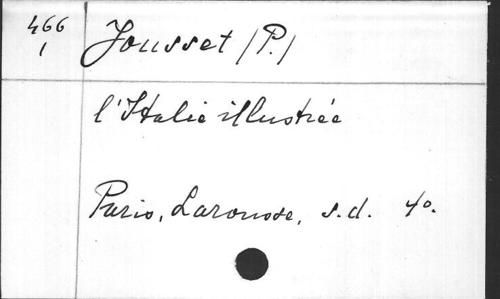 466
1
Jousset (P.)
l'Italie illustrée
Paris, Larousse, s.d. 4º.